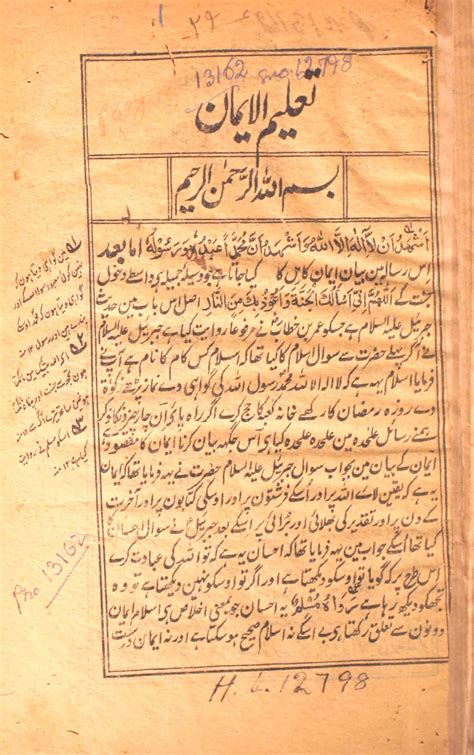 13162 H.L. 12798
تعلیم الایمان
بسم اللہ الرحمٰن الرحیم
اشہد ان لا الہ الا اللہ و اشہد ان محمداً عبدہ و رسولہ اما بعد
اس رسالہ مین بیان ایمان کامل کا کیا جاتا ہے جو وسیلہ جمیلہ ہے واسطے دخول
جنت کے اللھم انی اسألک الجنة واعوذ بک من النار اصل اس باب مین حدیث
جبریل علیہ السلام ہے جسکو عمر بن خطاب نے مرفوعاً روایت کیا ہے جبریل علیہ السلام
نے آکر پہلے حضرت سے سوال اسلام کا کیا تھا کہ اسلام کس کام کا نام ہے آپنے
فرمایا اسلام یہ ہے کہ لا الہ الا اللہ محمد رسول اللہ کی گواہی دے نماز پڑھے زکوٰة
دے روزہ رمضان کا رکھے خانہ کعبہ کا حج کرے اگر راہ پاۓ ان چار چیز کا ذکر
ہمنے رسائل علیحدہ مین علیحدہ علیحدہ کیا ہی اس جگہہ بیان کرنا ایمان کا مقصود ہے
ایمان کے بیان مین بجواب سوال جبریل علیہ السلام حضرت نے یہہ فرمایا تھا کہ ایمان
یہ ہے کہ یقین لاے اللہ پر اور اُسکے فرشتون پر اور اوسکی کتابون پر اور آخرت
کے دن پر اور تقدیر کی بھلائی اور برائی پر اسکے بعد جبریل نے سوال احسان کا
کیا تھا اُسکے جواب مین یہہ فرمایا تھا کہ احسان یہ ہے کہ تو اللہ کی عبادت کرے
اس طرح پر کہ گویا تو اوسکو دیکھتا ہے اور اگر تو اوسکو نہین دیکھتا ہے تو وہ
تجھکو دیکھ رہا ہے رواہ مسلم یہ احسان جو بمعنی اخلاص ہی اسلام ایمان
دونون سے تعلق رکھتا ہی بے اسکے نہ اسلام صحیح ہو سکتا ہے اور نہ ایمان درست
Pno 13162
H.L. 12798